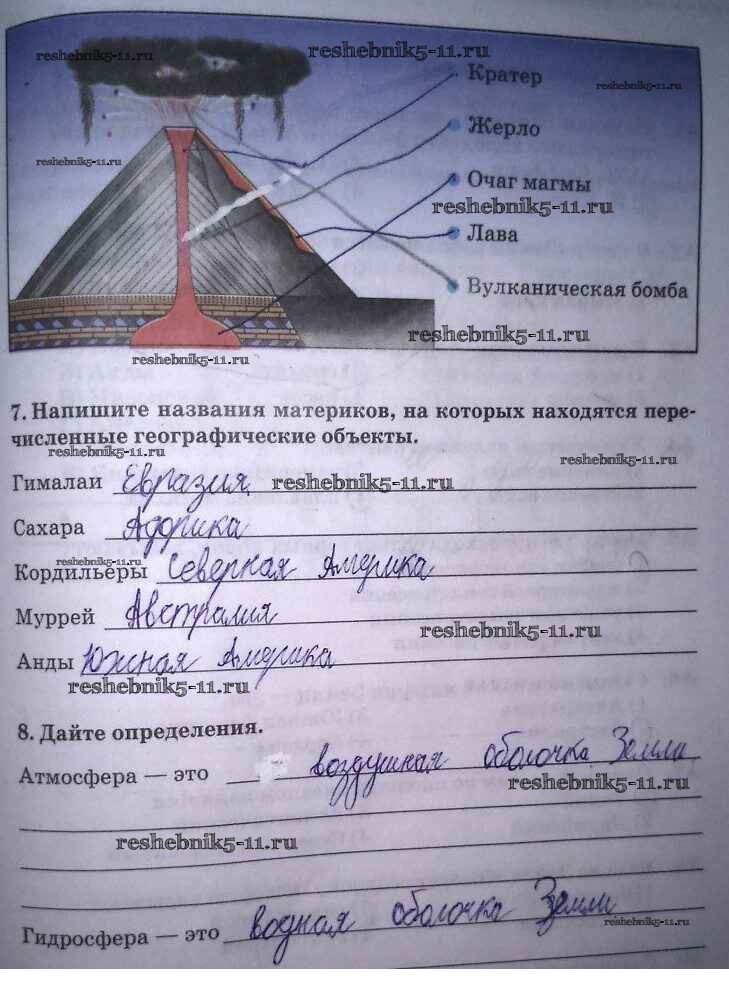 reshebnik5-11.ru
reshebnik5-11.ru
Кратер
reshebnik5-11.ru
Жерло
reshebnik5-11.ru
Очаг магмы
reshebnik5-11.ru
Лава
Вулканическая бомба
reshebnik5-11.ru
reshebnik5-11.ru
7. Напишите названия материков, на которых находятся пере-
численные географические объекты.
reshebnik5-11.ru
reshebnik5-11.ru
Гималаи Евразия
reshebnik5-11.ru
Сахара Африка
reshebnik5-11.ru
Кордильеры Северная Америка
Муррей Австралия
reshebnik5-11.ru
Анды Южная Америка
reshebnik5-11.ru
8. Дайте определения.
Атмосфера — это воздушная оболочка Земли
reshebnik5-11.ru
reshebnik5-11.ru
Гидросфера — это водная оболочка Земли
reshebnik5-11.ru